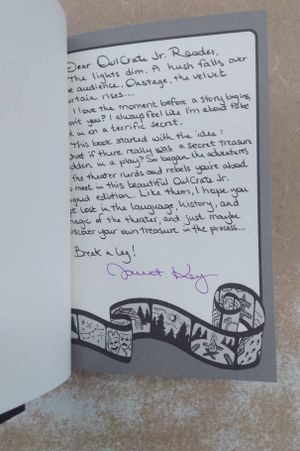 Dear OwlCrate Jr. Reader,
The lights dim. A hush falls over
e audience, Onstage, the velvet
rtain rises....
I love the moment before a story begins,
n't you? I always feel like I'm about to be
t in on a terrific secret.
This book started with the idea:
hat if there really was a secret treasure
dden in a play? So began the adventures
the theater nerds and rebels you're about
meet in this beautiful OwlCrate Jr.
gned edition. Like them, I hope you
et lost in the language, history, and
agic of the theater, and just maybe
scover your own treasure in the process...
Break a leg!
Janet Key